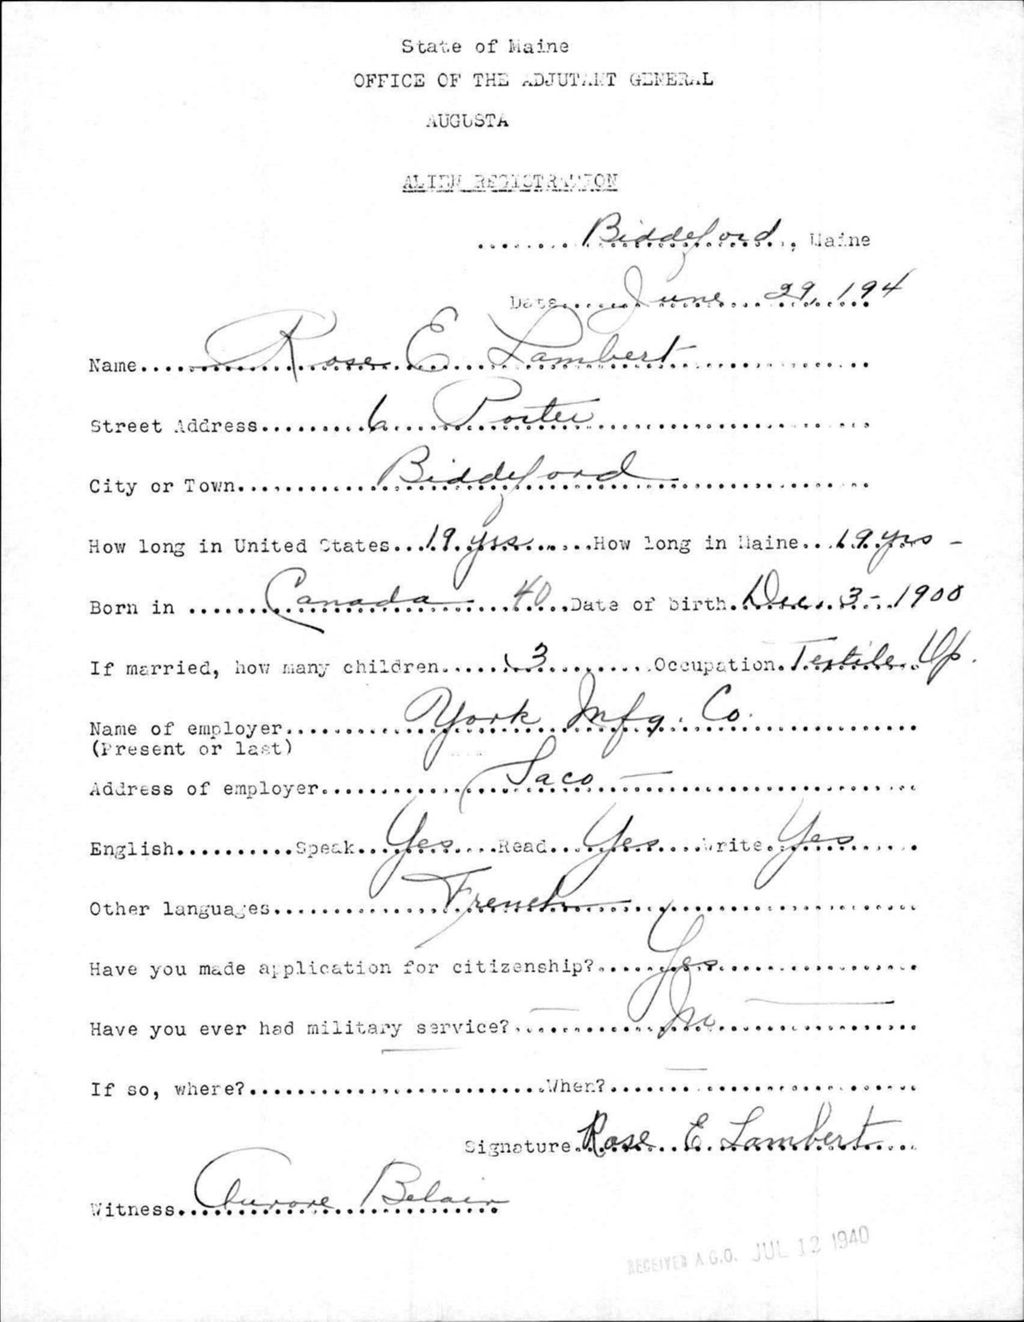 State of Maine
OFFICE OF THE ADJUTANT GENERAL
AUGUSTA
ALIEN REGISTRATION
Biddeford, Maine
Date June 29, 194
Name Rose E Lambert
Street Address 6 Porter
City or Town Biddeford
How long in United States 19 yrs How long in Maine 19 yrs -
Born in Canada 40 Date of birth Dec. 3 - 1900
If married, how many children 3 Occupation Textile Op.
Name of employer York Mfg. Co.
(Present or last)
Address of employer Saco —
English Speak Yes Read Yes Write Yes
Other languages French
Have you made application for citizenship? Yes
Have you ever had military service? No
If so, where? When?
Signature Rose E. Lambert
Witness Aurore Belair
RECEIVED A.G.O. JUL 12 1940